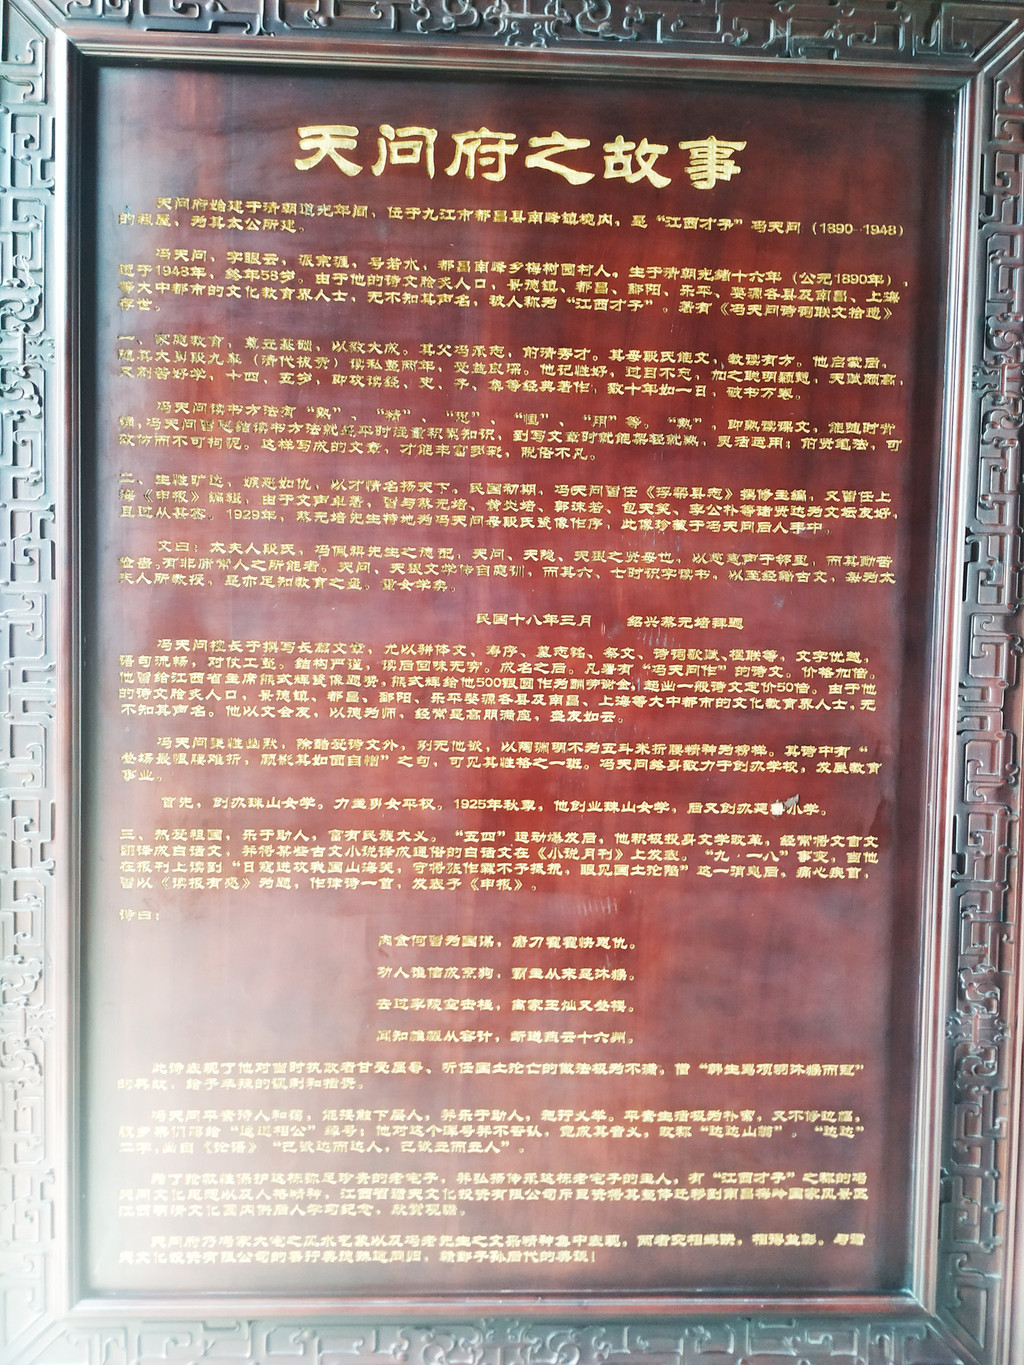 天问府之故事
天问府始建于清朝道光年间，位于九江市都昌县南峰镇境内，是“江西才子”冯天问（1890-1948）
的祖屋，为其太公所建。
冯天问，字眼云，派宗涯，号若水，都昌南峰乡梅树园村人，生于清朝光绪十六年（公元1890年），
逝于1948年，终年58岁。由于他的诗文脍炙人口，景德镇、都昌、鄱阳、乐平、婺源各县及南昌、上海
等大中都市的文化教育界人士，无不知其声名，被人称为“江西才子”。著有《冯天问诗词联文拾遗》
存世。
一、家庭教育，奠定基础，以致大成。其父冯承志，前清秀才。其母段氏能文，教读有方。他启蒙后，
随其大舅段九皋（清代拔贡）读私塾两年，受益良深。他记性好，过目不忘，加之聪明颖慧，天赋颇高，
又刻苦好学，十四、五岁，即攻读经、史、子、集等经典著作，数十年如一日，破书万卷。
冯天问读书方法有“熟”、“精”、“思”、“恒”、“用”等。“熟”，即熟读课文，能随时背
诵，冯天问曾总结读书方法就是平时注重积累知识，到写文章时就能驾轻就熟，灵活运用；前贤笔法，可
效仿而不可拘泥。这样写成的文章，才能丰富多彩，脱俗不凡。
二、生性旷达，嫉恶如仇，以才情名扬天下。民国初期，冯天问曾任《浮梁县志》撰修主编，又曾任上
海《申报》编辑，由于文声卓著，曾与蔡元培、黄炎培、郭沫若、包天笑、李公朴等诸贤达为文坛友好，
且过从甚密。1929年，蔡元培先生特地为冯天问母段氏瓷像作序，此像珍藏于冯天问后人手中。
文曰：太夫人段氏，冯佩祺先生之德配，天问、天隐、天琅之贤母也，以慈惠声于邻里，而其勤苦
俭啬，有非常人之所能者。天问、天琅文学传自庭训，而其六、七时识字读书，以至经籍古文，均为太
夫人所教授，是亦足知教育之盛。重女学矣。
民国十八年三月 绍兴蔡元培拜题
冯天问擅长于撰写长篇文章，尤以骈体文、寿序、墓志铭、祭文、诗词歌赋、楹联等，文字优越，
语句流畅，对仗工整。结构严谨，读后回味无穷。成名之后。凡署有“冯天问作”的诗文。价格加倍。
他曾给江西省主席熊式辉瓷像题赞，熊式辉给他500银圆作为酬劳谢金，超出一般诗文定价50倍。由于他
的诗文脍炙人口，景德镇、都昌、鄱阳、乐平婺源各县及南昌、上海等大中都市的文化教育界人士，无
不知其声名。他以文会友，以德为师，经常是高朋满座，盛友如云。
冯天问秉性幽默，除酷爱诗文外，别无他嗜，以陶渊明不为五斗米折腰精神为榜样。其诗中有“
登场最恨腰难折，顾影其如面自憎”之句，可见其性格之一斑。冯天问终身致力于创办学校，发展教育
事业。
首先，创办珠山女学。力主男女平权。1925年秋季，他创业珠山女学，后又创办延春小学。
三、热爱祖国，乐于助人，富有民族大义。“五四”运动爆发后，他积极投身文学改革，经常将文言文
翻译成白话文，并将某些古文小说译成通俗的白话文在《小说月刊》上发表。“九·一八”事变，当他
在报刊上读到“日寇进攻我国山海关，守将张作霖不予抵抗，眼见国土沦陷”这一消息后，痛心疾首，
曾以《读报有感》为题，作律诗一首，发表予《申报》。
诗曰：
肉食何曾为国谋，磨刀霍霍快恩仇。
功人谁信成烹狗，霸主从来是沐猴。
去过李陵空击棰，离家王灿又登楼。
闻知雅报从容计，断送燕云十六州。
此诗表现了他对当时执政者甘受屈辱、听任国土沦亡的做法极为不满，借“韩生骂项羽沐猴而冠”
的典故，给予辛辣的讽刺和指责。
冯天问平素待人和蔼，能接触下层人，并乐于助人，把行义举。平素生活极为朴素，又不修边幅，
故乡亲们常给“邋遢相公”绰号；他对这个浑号并不否认，竟成其自义，改称“达达山翁”。“达达”
二字，出自《论语》“己欲达而达人，己欲立而立人”。
为了抢救维保护这栋弥足珍贵的老宅子，并弘扬传承这栋老宅子的主人，有“江西才子”之称的冯
天问文化思想以及人格精神，江西省谱天文化投资有限公司斥巨资将其整体迁移到南昌梅岭国家风景区
江西明清文化园内供后人学习纪念，欣赏观瞻。
天问府乃冯家大宅之风水气象以及冯老先生之文采精神集中表现，两者交相辉映，相得益彰。与谱
天文化投资有限公司的善行美德殊途同归，赣鄱子孙后代的美谈！